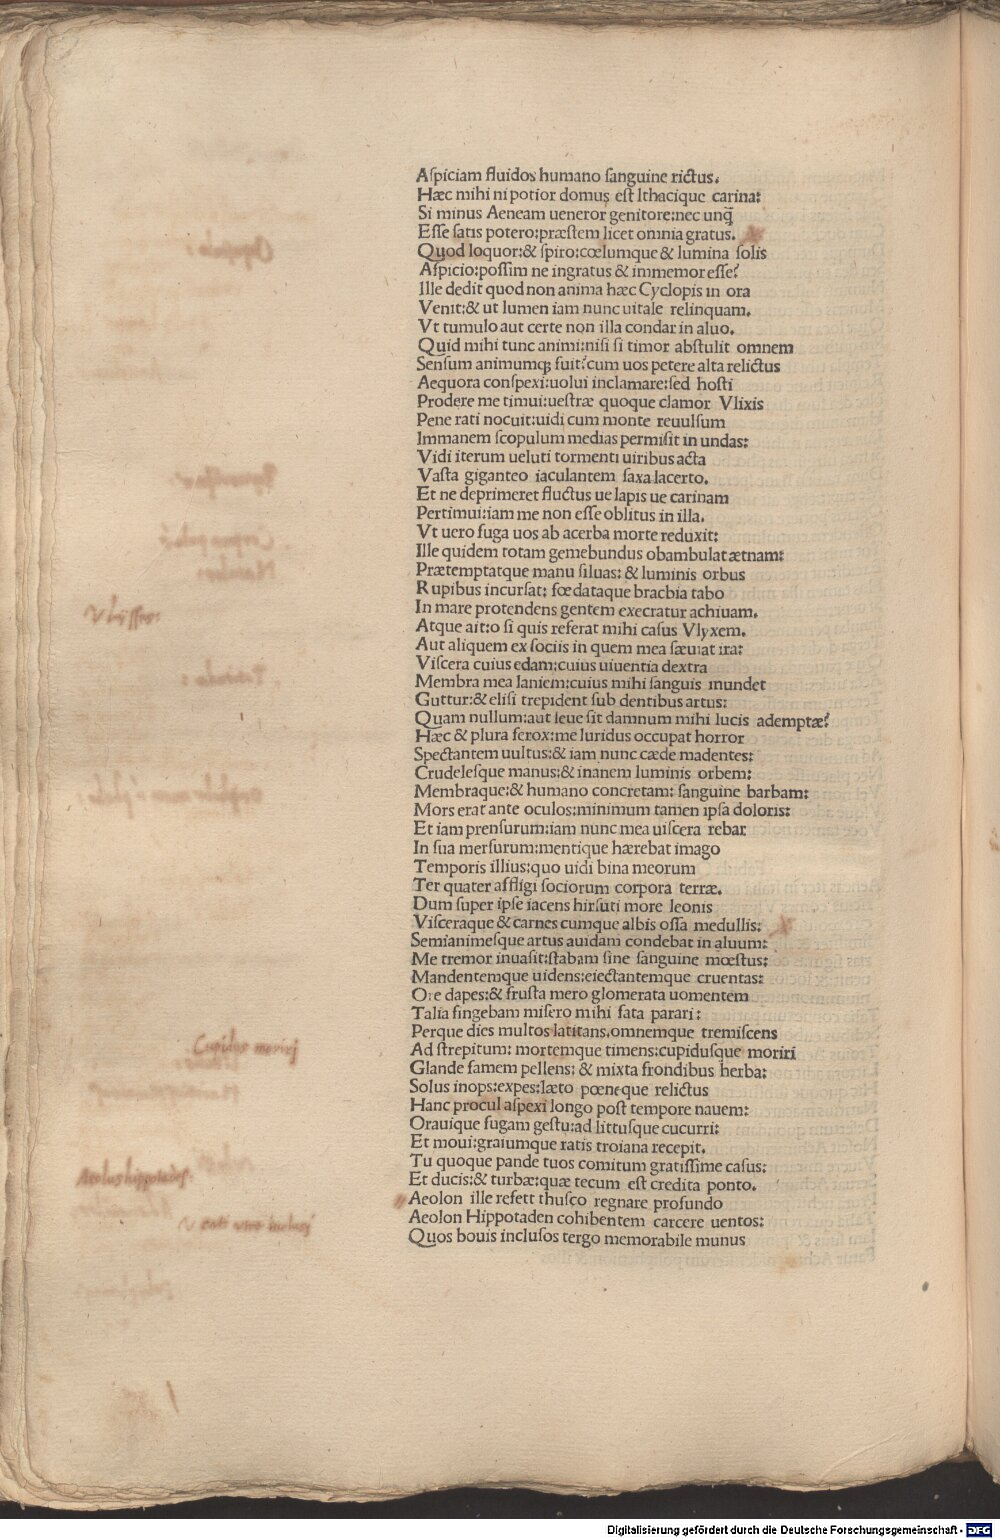 Aſpiciam fluidos humano ſanguine rictus.
Hæc mihi ni potior domus eſt Ithacique carina:
Si minus Aeneam ueneror genitore:nec unq̃
Eſſe ſatis potero:præſtem licet omnia gratus.
Quod loquor:& ſpiro:cœlumque & lumina ſolis
Aſpicio:poſſim ne ingratus & immemor eſſe?
Ille dedit quod non anima hæc Cyclopis in ora
Venit:& ut lumen iam nunc uitale relinquam.
Vt tumulo aut certe non illa condar in aluo.
Quid mihi tunc animi:niſi ſi timor abſtulit omnem
Senſum animumq; fuit?cum uos petere alta relictus
Aequora conſpexi:uolui inclamare:ſed hoſti
Prodere me timui:ueſtræ quoque clamor Vlixis
Pene rati nocuit:uidi cum monte reuulſum
Immanem ſcopulum medias permiſit in undas:
Vidi iterum ueluti tormenti uiribus acta
Vaſta giganteo iaculantem ſaxa lacerto.
Et ne deprimeret fluctus ue lapis ue carinam
Pertimui:iam me non eſſe oblitus in illa.
Vt uero fuga uos ab acerba morte reduxit:
Ille quidem totam gemebundus obambulat ætnam:
Prætemptatque manu ſiluas: & luminis orbus
Rupibus incurſat: fœdataque bracbia tabo
Vlyſſes:
In mare protendens gentem execratur achiuam.
Atque ait:o ſi quis referat mihi caſus Vlyxem.
Aut aliquem ex ſociis in quem mea ſæuiat ira:
Viſcera cuius edam:cuius uiuentia dextra
Membra mea laniem:cuius mihi ſanguis inundet
Guttur:& eliſi trepident ſub dentibus artus:
Quam nullum:aut leue ſit damnum mihi lucis ademptæ?
Hæc & plura ferox:me luridus occupat horror
Spectantem uultus:& iam nunc cæde madentes:
Crudeleſque manus:& inanem luminis orbem:
Membraque:& humano concretam: ſanguine barbam:
Mors erat ante oculos:minimum tamen ipſa doloris:
Et iam prenſurum:iam nunc mea uiſcera rebar
In ſua merſurum:mentique hærebat imago
Temporis illius:quo uidi bina meorum
Ter quater affligi ſociorum corpora terræ.
Dum ſuper ipſe iacens hirſuti more leonis
Viſceraque & carnes cumque albis oſſa medullis:
Semianimeſque artus auidam condebat in aluum:
Me tremor inuaſit:ſtabam ſine ſanguine mœſtus:
Mandentemque uidens:eiectantemque cruentas:
Ore dapes:& fruſta mero glomerata uomentem
Talia fingebam miſero mihi fata parari:
Perque dies multos latitans.omnemque tremiſcens
Cupidus moriri
Ad ſtrepitum: mortemque timens:cupiduſque moriri
Glande famem pellens: & mixta frondibus herba:
Solus inops:expes:læto pœneque relictus
Hanc procul aſpexi longo poſt tempore nauem:
Orauique fugam geſtu:ad littuſque cucurri:
Et moui:graiumque ratis troiana recepit.
Tu quoque pande tuos comitum gratiſſime caſus:
Et ducis:& turbæ:quæ tecum eſt credita ponto.
Aeolus hippotades.
Aeolon ille refett thuſco regnare profundo
Aeolon Hippotaden cohibentem carcere uentos:
Venti utre incluſi
Quos bouis incluſos tergo memorabile munus
Digitalisierung gefördert durch die Deutsche Forschungsgemeinschaft - DFG